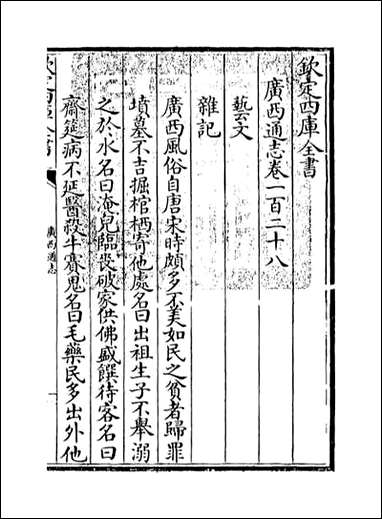 欽定四庫全書
廣西通志卷一百二十八
藝文
雜記
廣西風俗自唐宋時頗多不美如民之貧者歸罪
墳墓不吉掘棺栖寄他處名曰出祖生子不舉溺
之於水名曰淹兒臨喪破家供佛盛饌待客名曰
齋筵病不延醫殺牛賽鬼名曰毛藥民多出外他
廣西通志